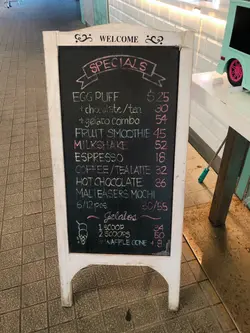 WELCOME
SPECIALS
EGG PUFF $25
+ chocolate/tea 30
+ gelato combo 54
FRUIT SMOOTHIE 45
MILKSHAKE 52
ESPRESSO 18
COFFEE/TEA LATTE 32
HOT CHOCOLATE 36
MALTEASERS MOCHI
6/12 pcs 30/55
Gelatos
1 SCOOP 34
2 SCOOPS 50
+ WAFFLE CONE + 8